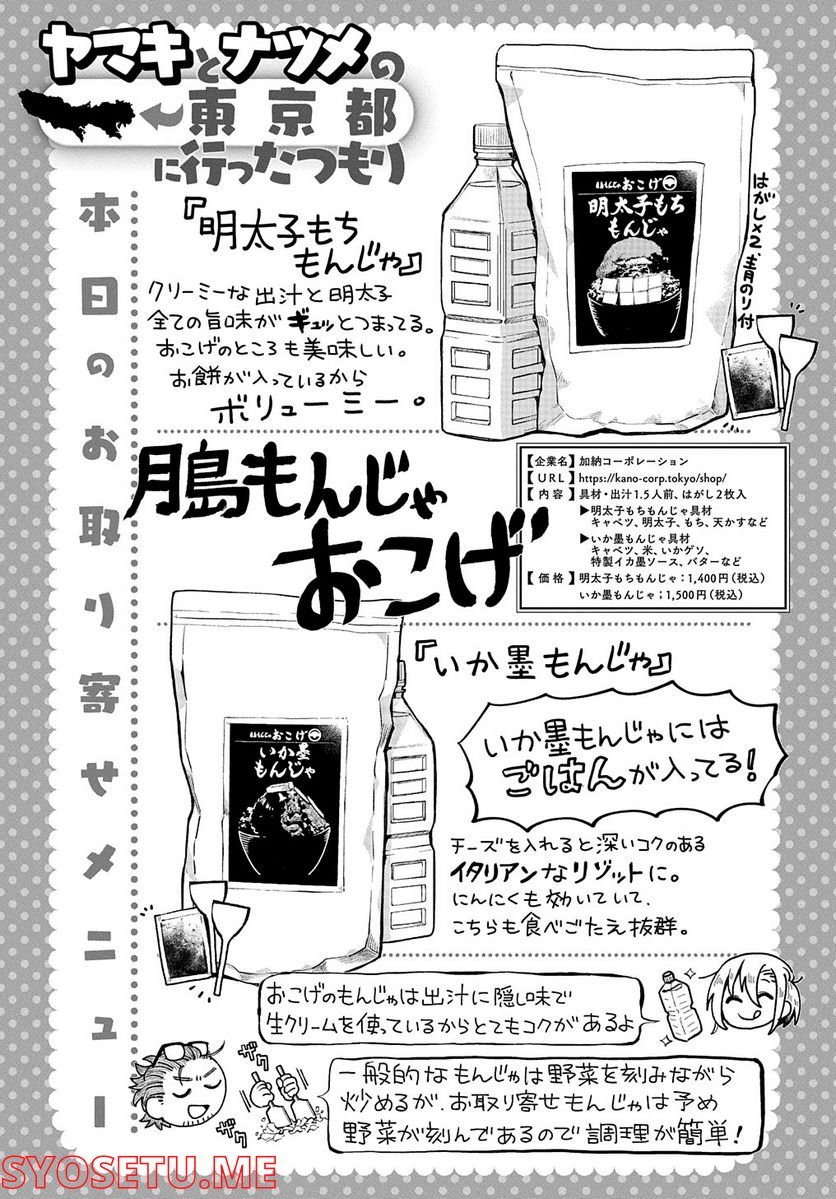 ヤマキとナツメの
東京都
に行ったつもり
本日のお取り寄せメニュー
『明太子もち
もんじゃ』
クリーミーな出汁と明太子
全ての旨味がギュッとつまってる。
おこげのところも美味しい。
お餅が入っているから
ボリューミー。
おこげ
明太子もち
もんじゃ
はがし×2、青のり付
月島もんじゃ
おこげ
【企業名】加納コーポレーション
【URL】https://kano-corp.tokyo/shop/
【内容】具材・出汁1.5人前、はがし2枚入
▶明太子もちもんじゃ具材
キャベツ、明太子、もち、天かすなど
▶いか墨もんじゃ具材
キャベツ、米、いかゲソ、
特製イカ墨ソース、バターなど
【価格】明太子もちもんじゃ：1,400円（税込）
いか墨もんじゃ；1,500円（税込）
『いか墨もんじゃ』
おこげ
いか墨
もんじゃ
いか墨もんじゃには
ごはんが入ってる！
チーズを入れると深いコクのある
イタリアンなリゾットに。
にんにくも効いていて、
こちらも食べごたえ抜群。
おこげのもんじゃは出汁に隠し味で
生クリームを使っているからとてもコクがあるよ
ザク
ザク
一般的なもんじゃは野菜を刻みながら
炒めるが、お取り寄せもんじゃは予め
野菜が刻んであるので調理が簡単！
SYOSETU.ME